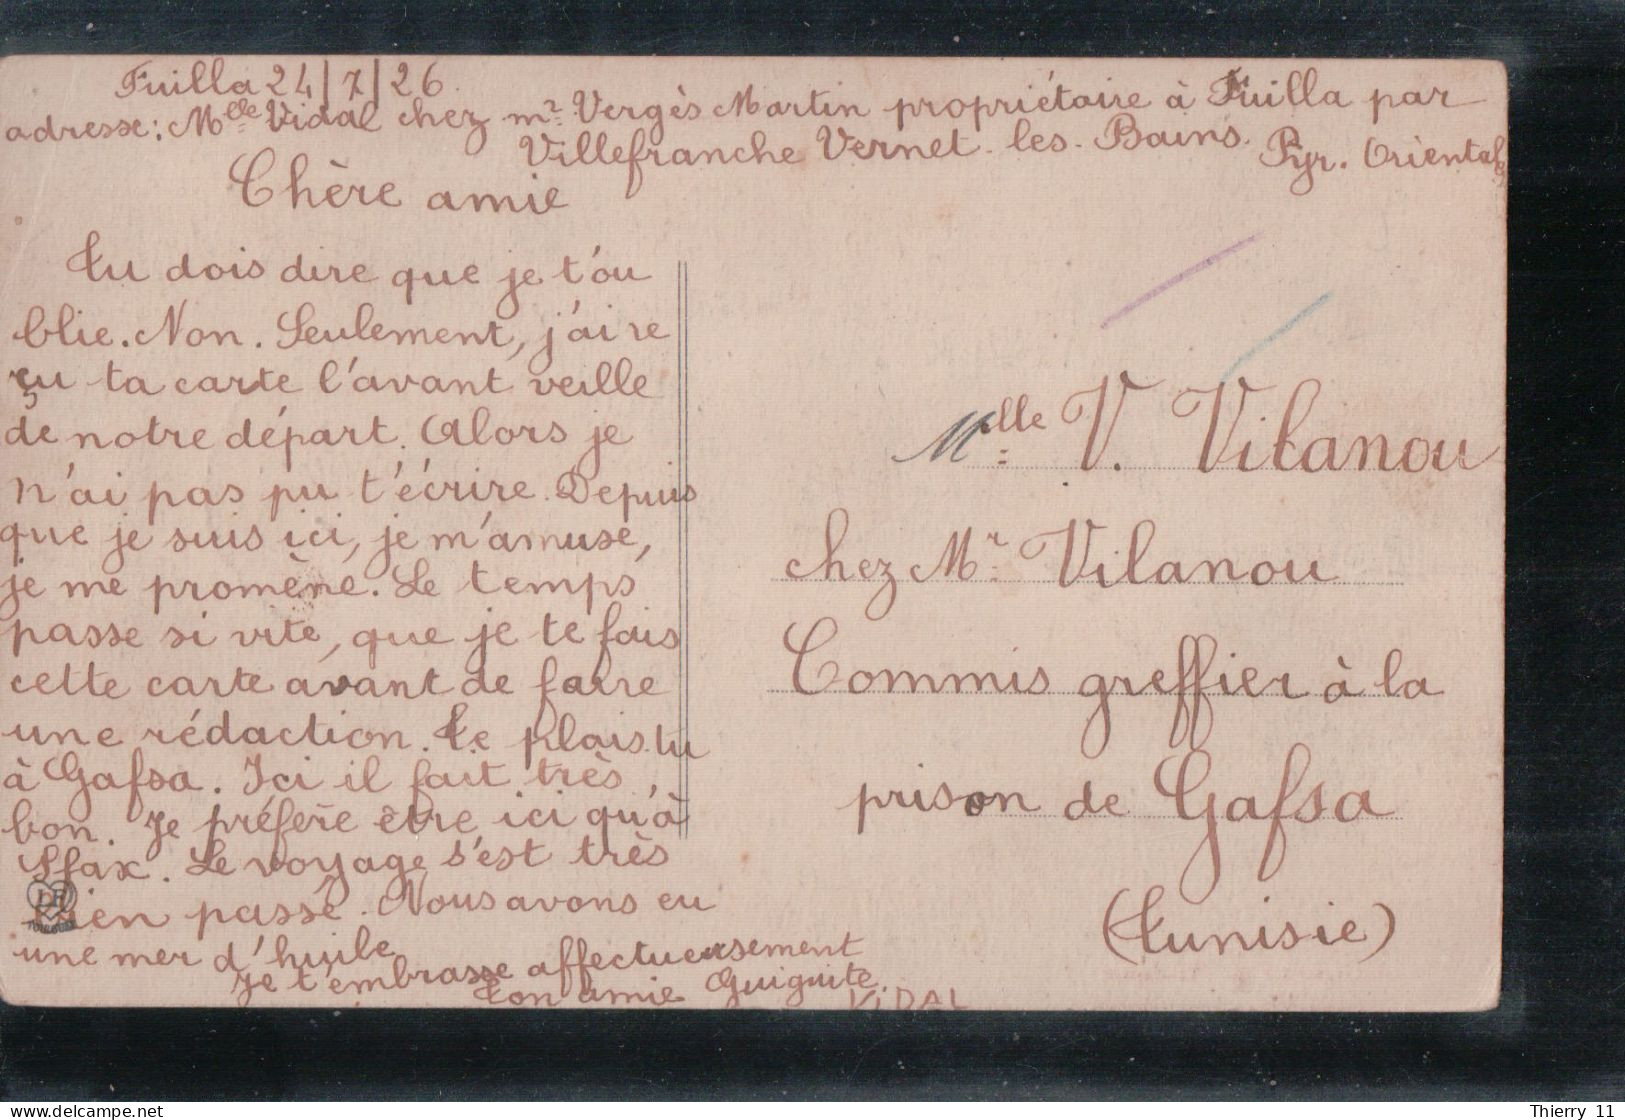 Fuilla 24/7/26.
adresse: Mlle Vidal chez mr Vergès Martin propriétaire à Fuilla par
Villefranche Vernet-les-Bains. Pyr. Orientales
Chère amie
Tu dois dire que je t'ou
blie. Non. Seulement, j'ai re
çu ta carte l'avant veille
de notre départ. Alors je
n'ai pas pu t'écrire. Depuis
que je suis ici, je m'amuse,
je me promène. Le temps
passe si vite, que je te fais
cette carte avant de faire
une rédaction. Te plais tu
à Gafsa. Ici il fait très
bon. Je préfère être ici qu'à
Sfax. Le voyage s'est très
bien passé. Nous avons eu
une mer d'huile
Je t'embrasse affectueusement
Ton amie Guiguite.
VIDAL
Mlle V. Vilanou
chez Mr Vilanou
Commis greffier à la
prison de Gafsa
(Tunisie)
Thierry 11